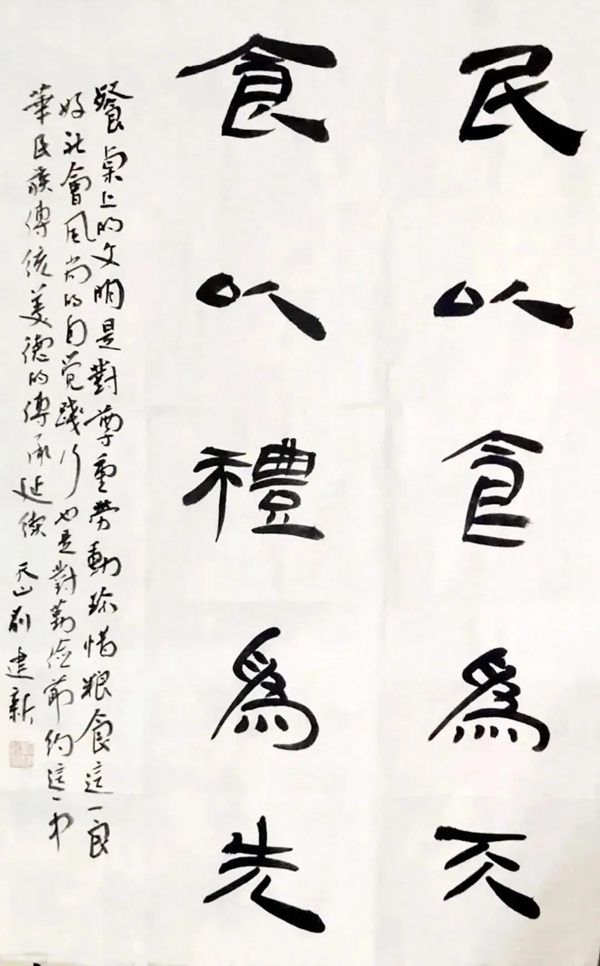 民以食為天
食以禮為先
餐桌上的文明是對尊重勞動珍惜粮食這一良
好社會風尚的自觉踐行也是對勤儉節约這一中
華民族傳統美德的傳承延續 天山刘建新